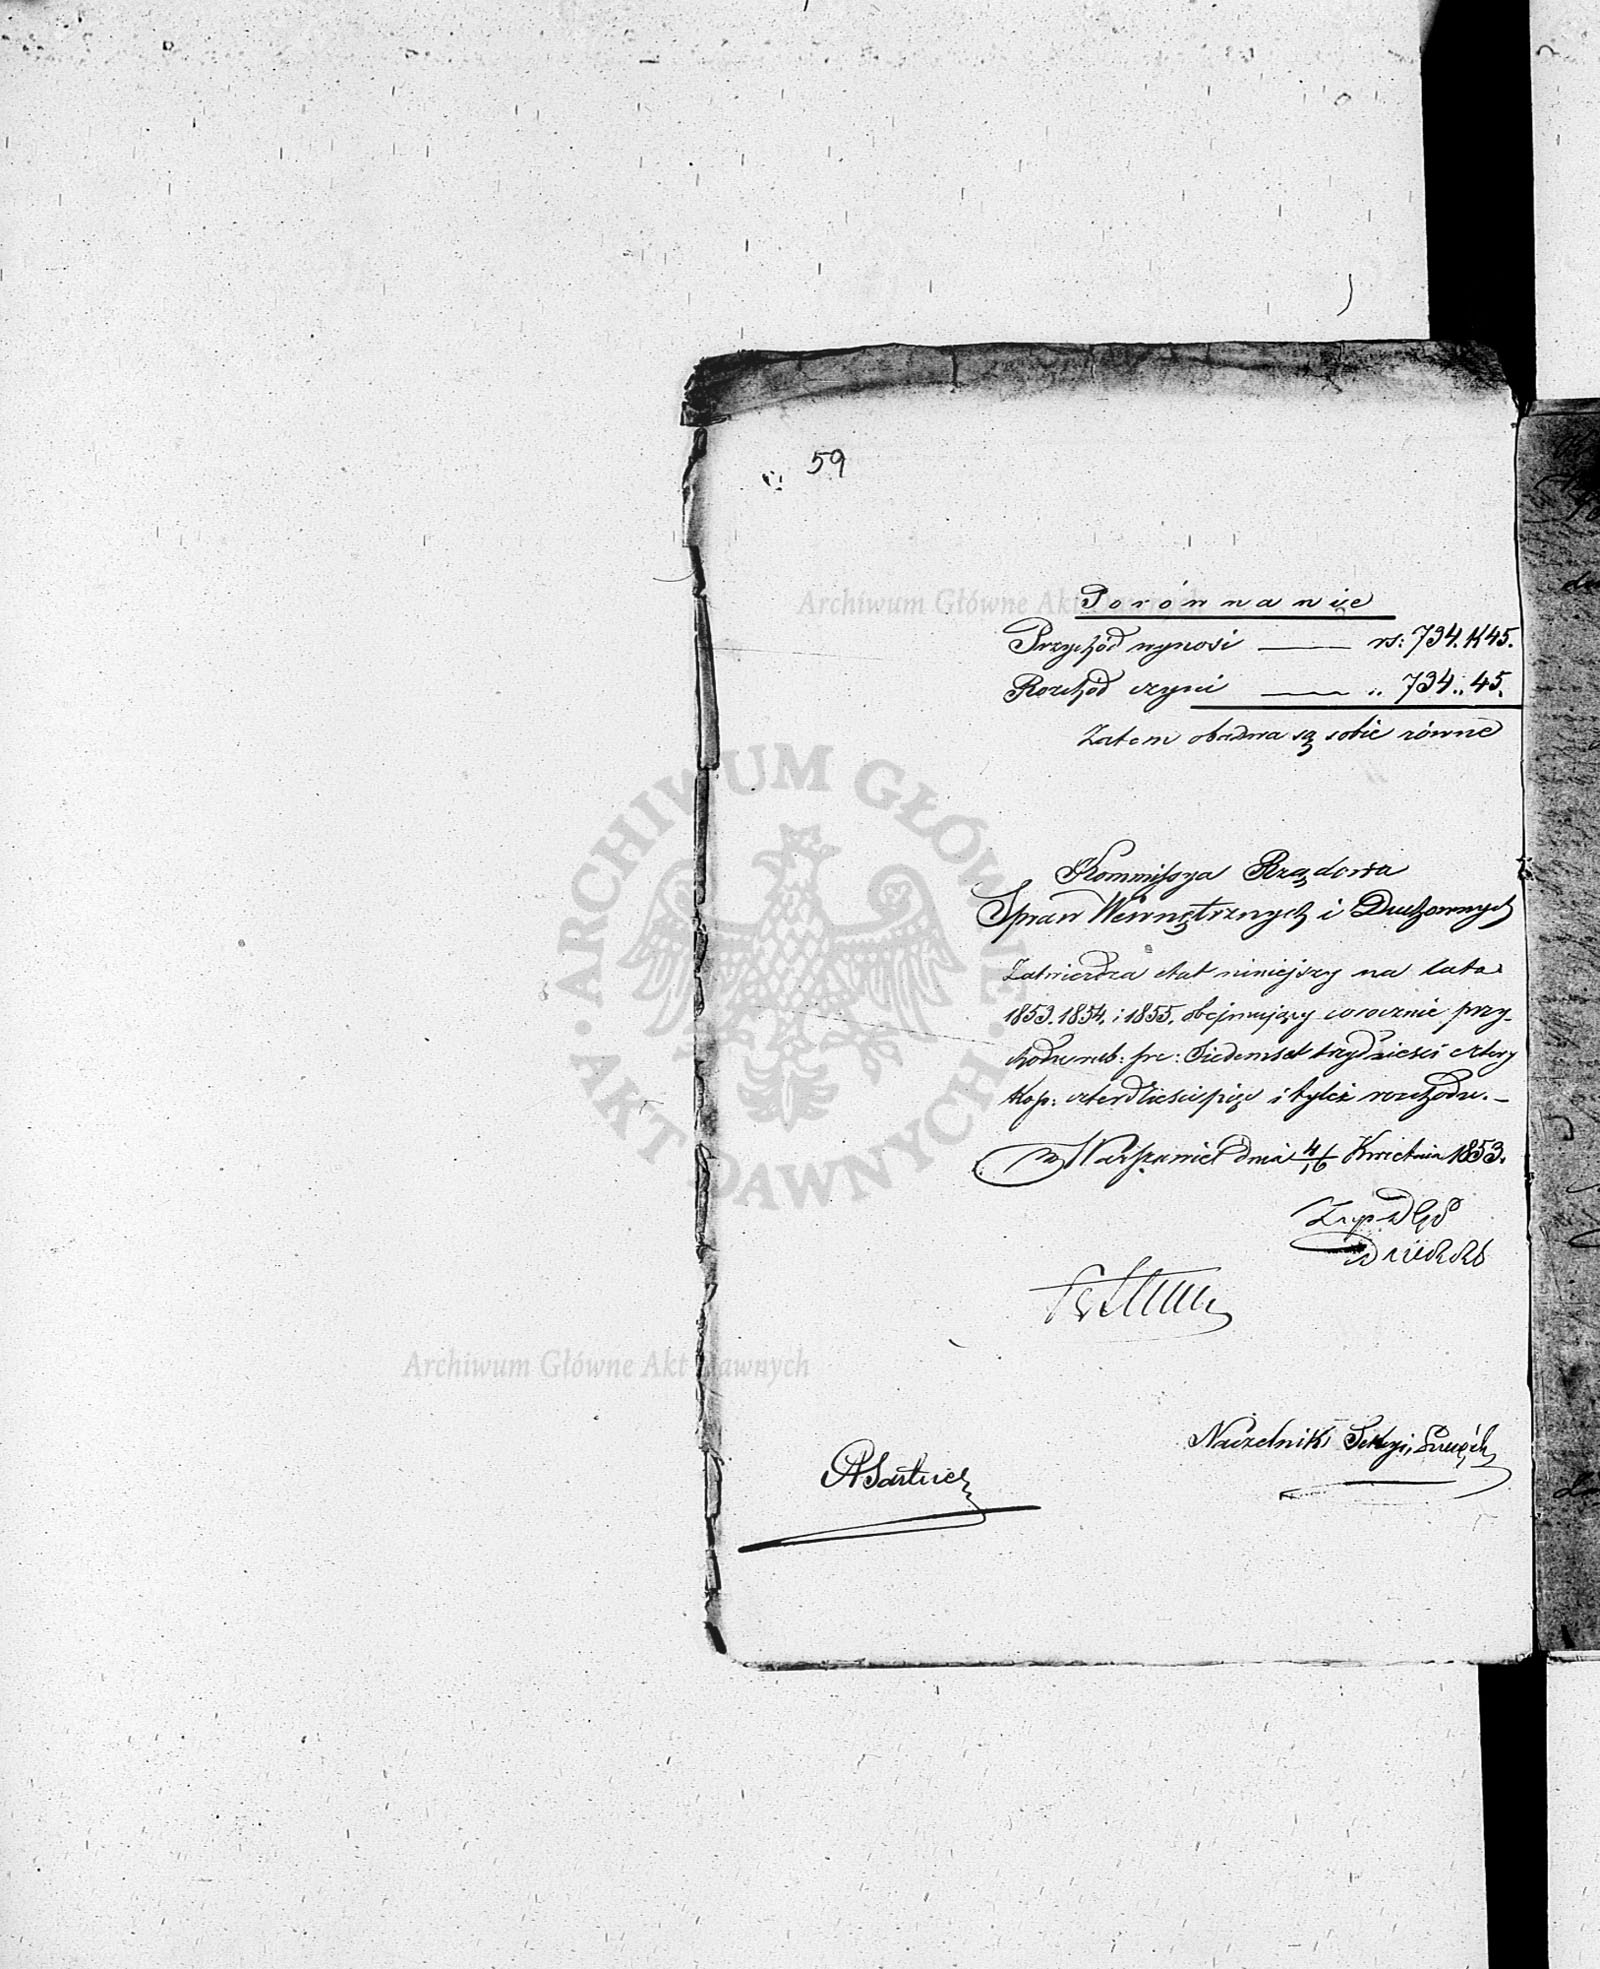 59
Porównanie
Przychód wynosi —— rs: 734. K 45.
Rozchód czyni —— „ 734 „ 45.
Zatem obadwa są sobie równe
Kommissya Rządowa
Spraw Wewnętrznych i Duchownych
Zatwierdza etat niniejszy na lata
1853. 1854. i 1855. obejmujący corocznie przy-
chodu rub: sr: Siedemset trzydzieści cztery
Kop: czterdzieści pięć i tyleż rozchodu. –
w Warszawie dnia 4/16 Kwietnia 1853.
Naczelnik Sekcyi
Archiwum Główne Akt Dawnych
ARCHIWUM GŁÓWNE
• AKT DAWNYCH •
Archiwum Główne Akt Dawnych